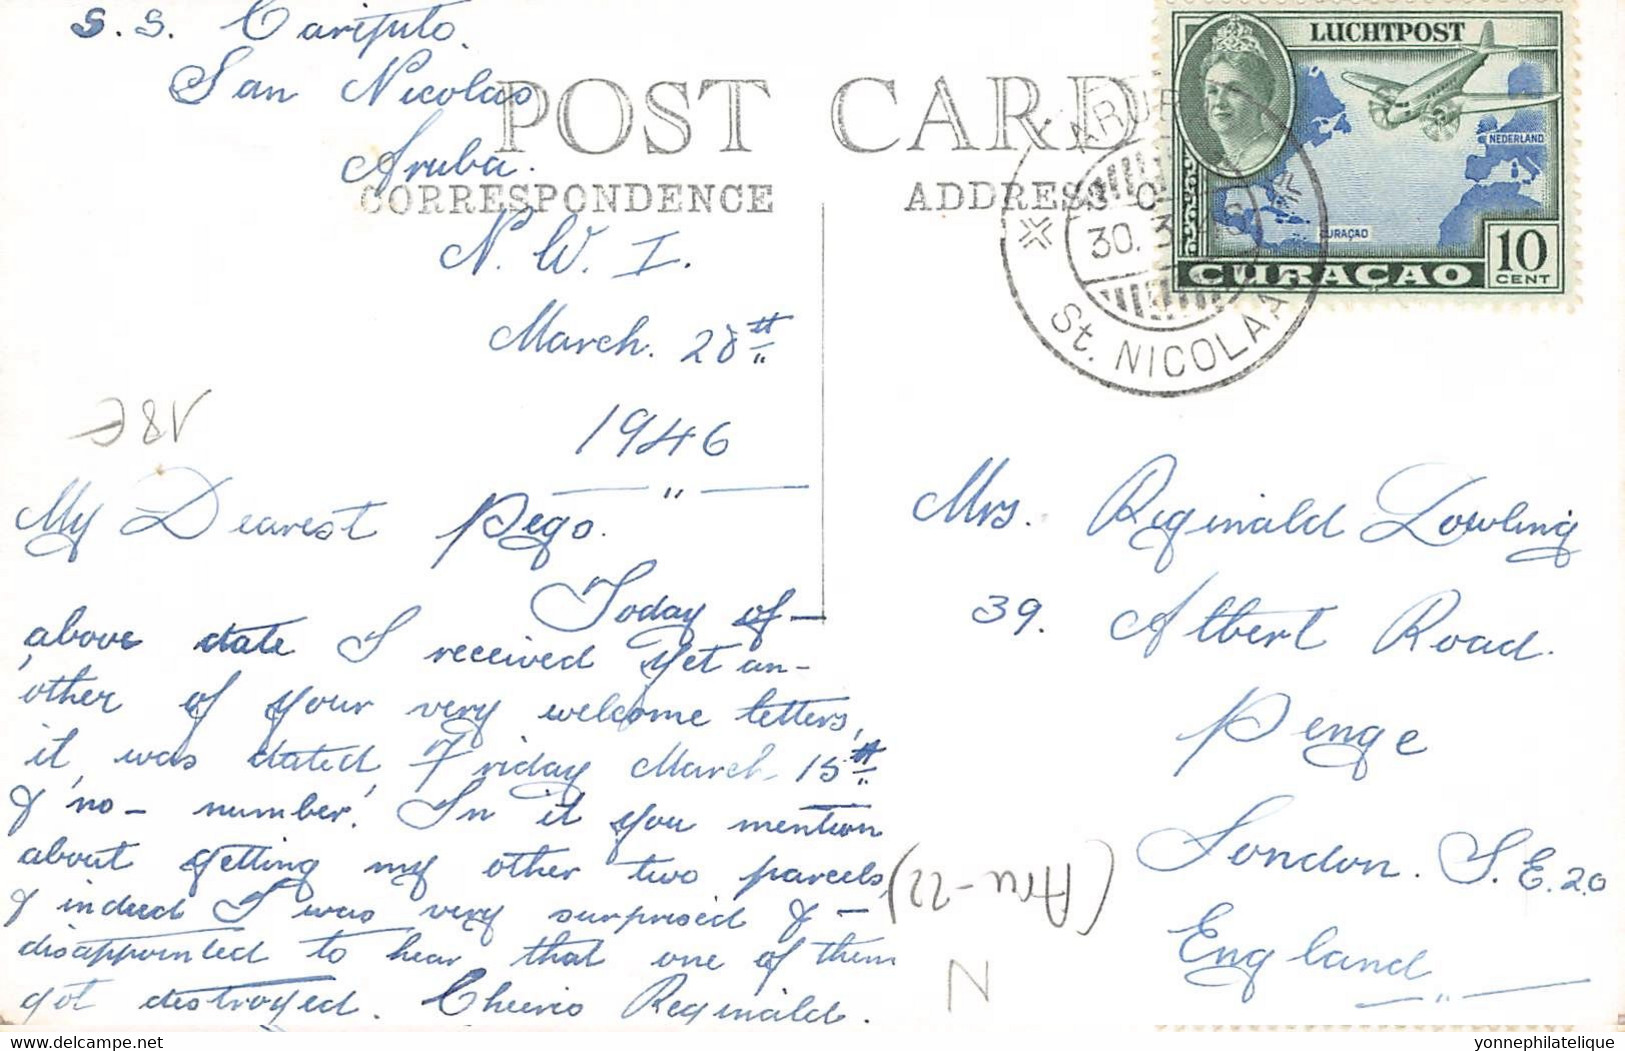 S. S.
San Nicolas
Aruba.
N. W. I.
March. 28th
1946
POST CARD
CORRESPONDENCE
ADDRESS O
LUCHTPOST
NEDERLAND
CURAÇAO
CURAÇAO
10
CENT
ARUBA
30. 3
St. NICOLAAS
My Dearest Pego.
Today of—
above date I received yet an-
other of your very welcome letters,
it was dated, Friday March 15th
& 'no - number.' In it you mention
about getting my other two parcels,
& indeed I was very surprised & —
disappointed to hear that one of them
got destroyed. Cheerio Reginald.
Mrs. Reginald Lowling
39. Albert Road.
Penge
London. S. E. 20
England
(Aru-22)
N
yonnephilatelie.com